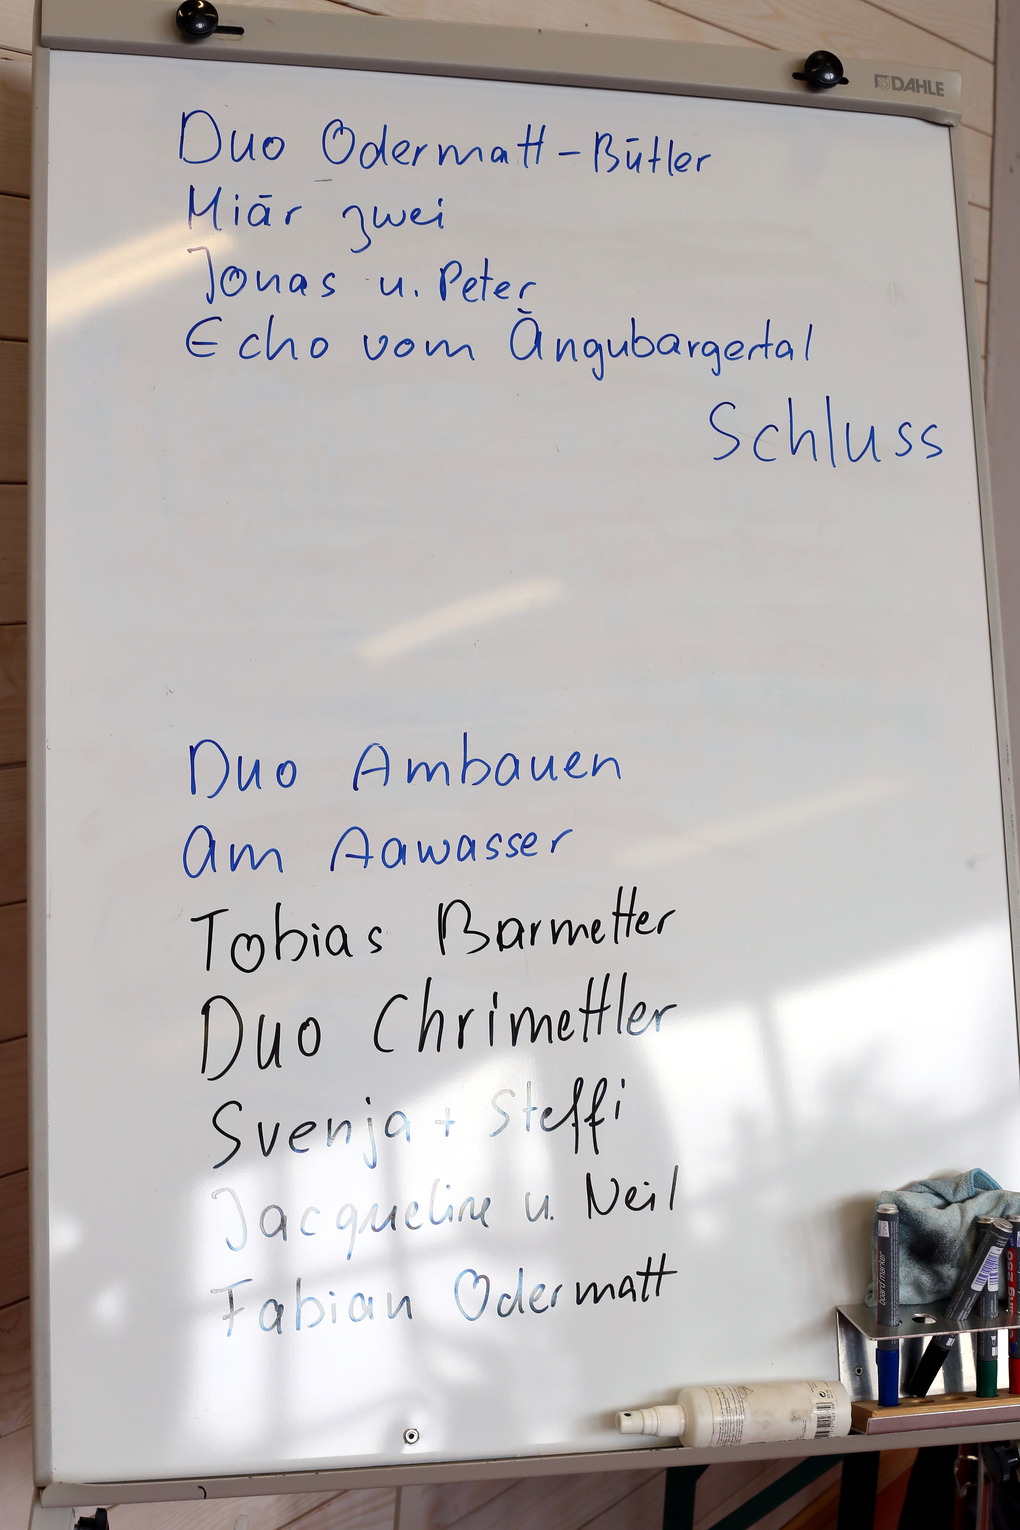 DAHLE
Duo Odermatt-Bütler
Miär zwei
Jonas u. Peter
Echo vom Ängubargertal
Schluss
Duo Ambauen
am Aawasser
Tobias Barmetter
Duo Chrimettler
Svenja + Steffi
Jacqueline u. Neil
Fabian Odermatt
board marker